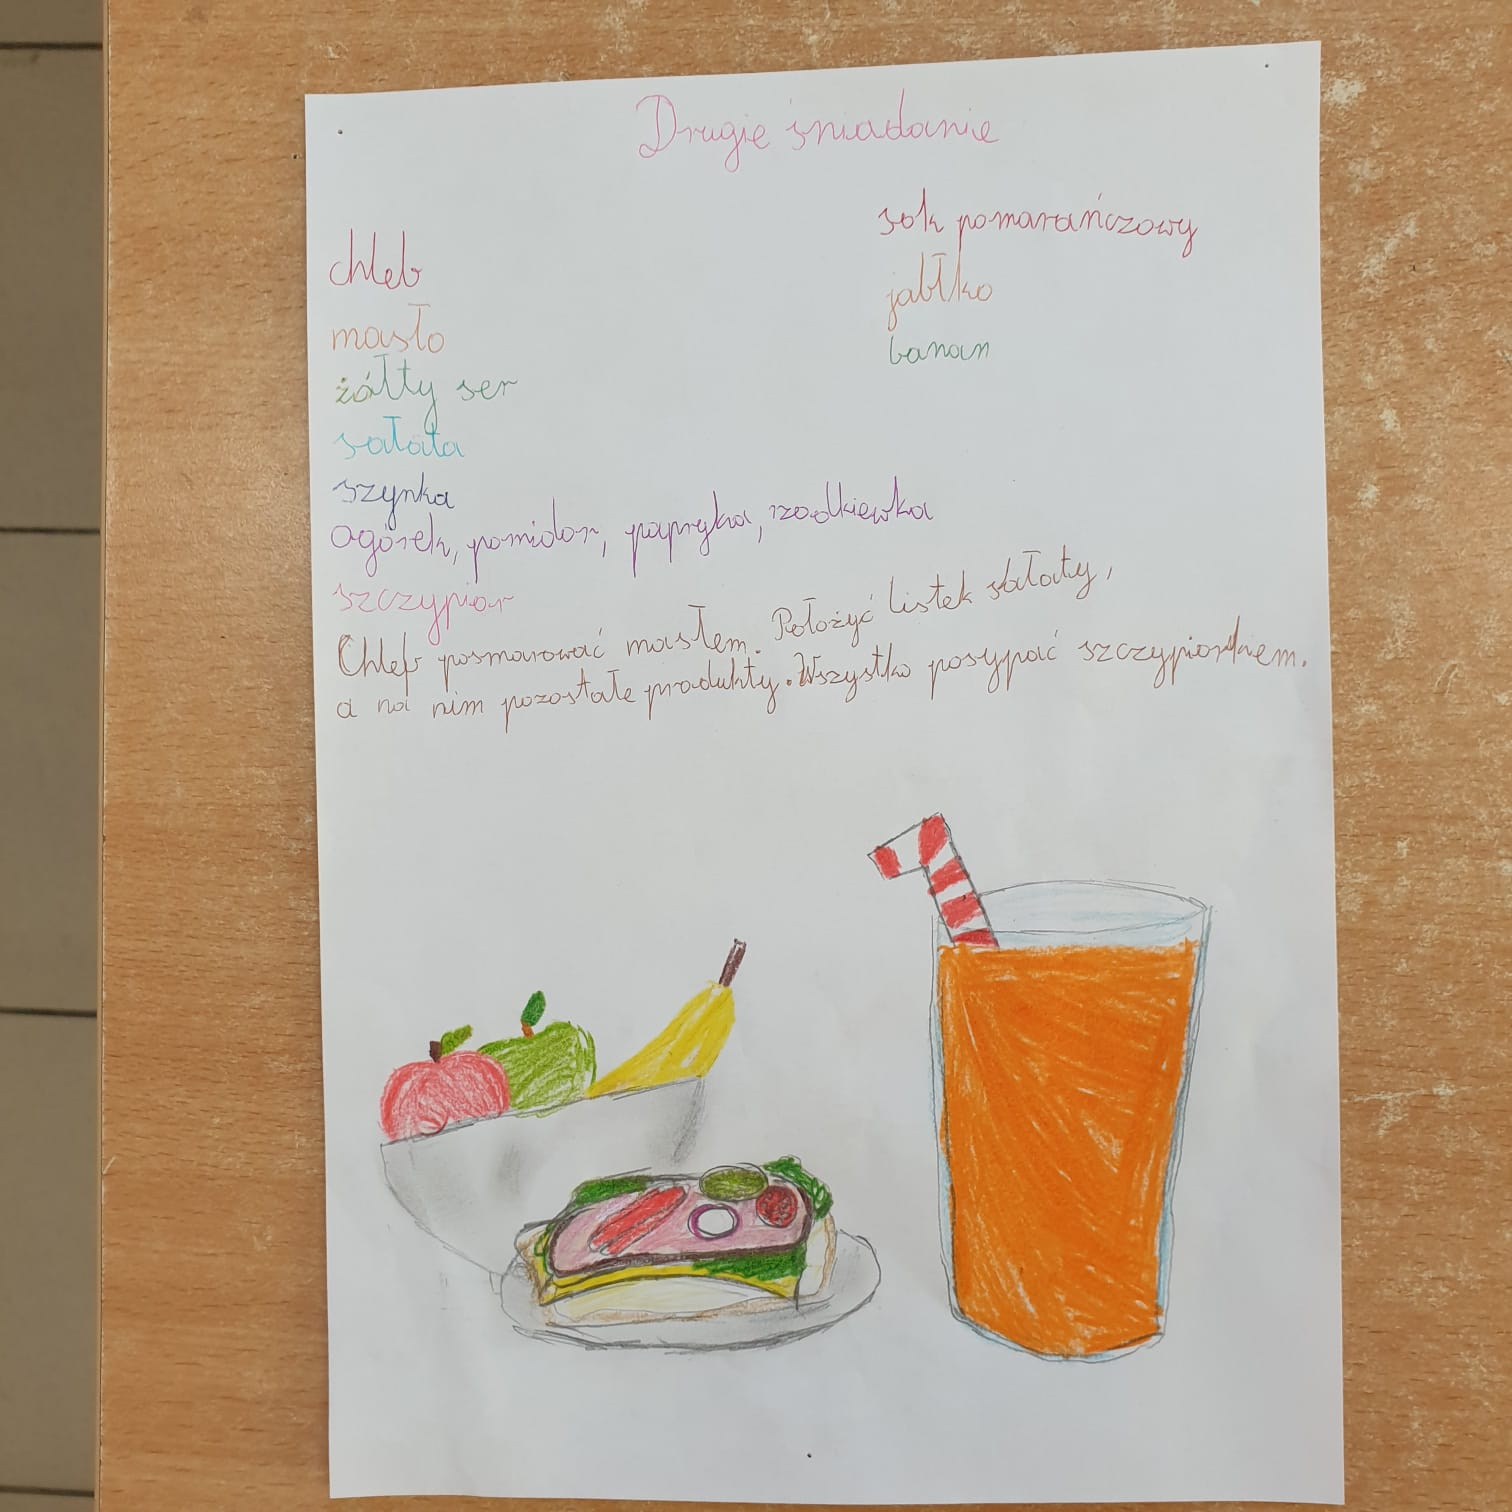 Drugie śniadanie
chleb
masło
żółty ser
sałata
szynka
ogórek, pomidor, papryka, rzodkiewka
szczypior
sok pomarańczowy
jabłko
banan
Chleb posmarować masłem. Położyć listek sałaty,
a na nim pozostałe produkty. Wszystko posypać szczypiorkiem.